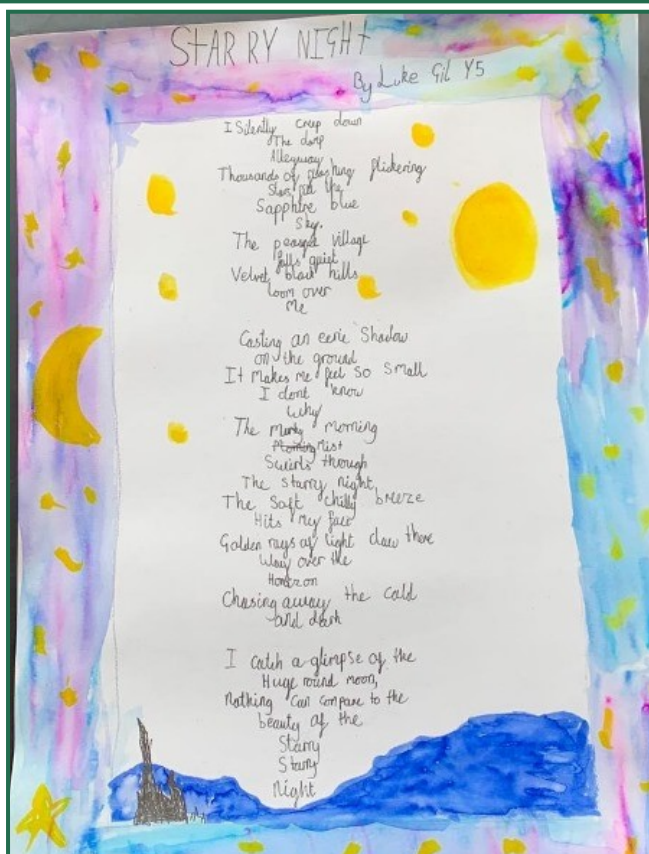 STARRY NIGHT
By Luke Gil Y5
I Silently creep down
The damp
Alleyway
Thousands of flickering
Stars the
Sapphire blue
Sky.
The village
falls quiet
Velvet black hills
loom over
Me
Casting an eerie Shadow
on the ground
It makes me feel so small
I dont know
Why
The Murky morning
Mist
Swirls through
The starry night,
The Soft chilly breeze
Hits my face
Golden rays of light claw there
Way over the
Chasing away the cold
and dark
I catch a glimpse of the
Huge round moon,
Nothing can compare to the
beauty of the
Starry
Starry
Night